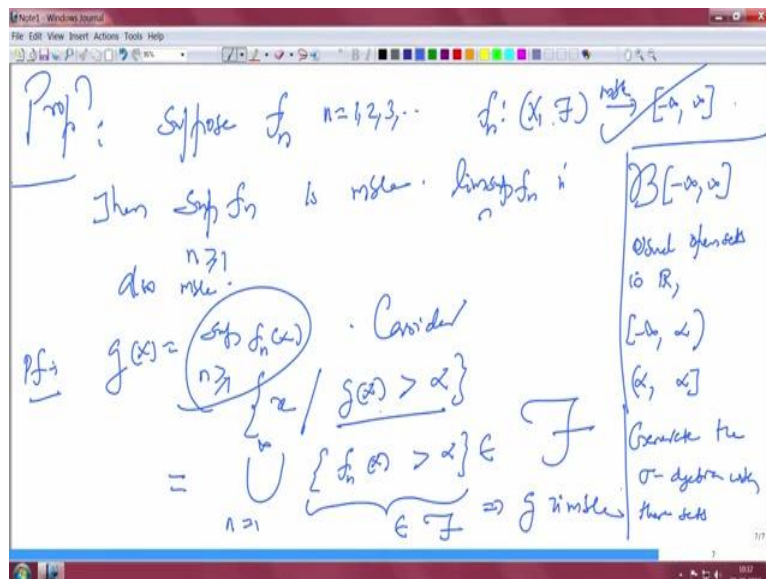 Note1 - Windows Journal
File Edit View Insert Actions Tools Help
Propⁿ: Suppose fₙ n=1,2,3,... fₙ: (X, F) msble → [-∞, ∞].
Then Sup fₙ is msble. limsup fₙ is
n≥1 n
also msble.
Pf→ g(x) = sup fₙ(x) . Consider
n≥1
{x / g(x) > α}
= ∞ ∪ n=1 {fₙ(x) > α} ∈ F
∈ F ⇒ g is msble
B[-∞, ∞]
usual open sets
in R,
[-∞, α)
(α, ∞]
Generate the
σ-algebra using
these sets
7/7
7
10:32